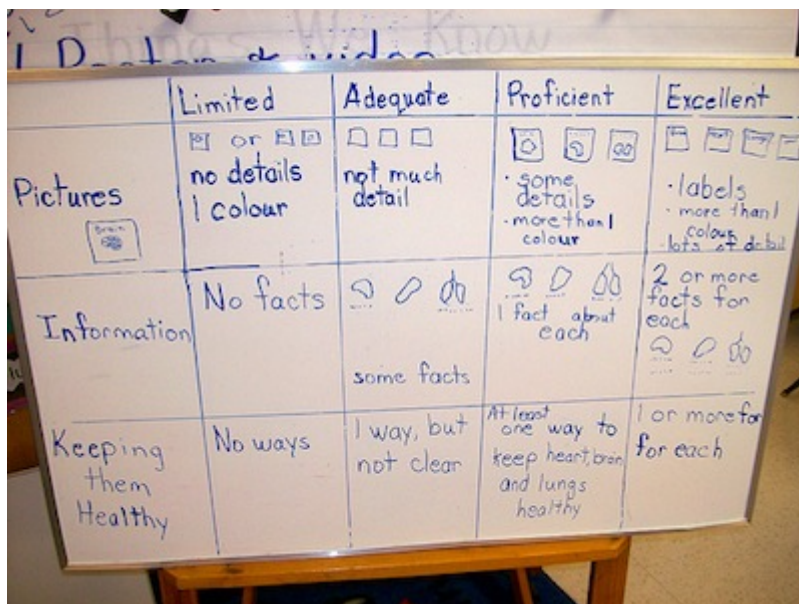 Things We Know
Poster & video
Limited
Adequate
Proficient
Excellent
Pictures
Brain
or
no details
1 colour
not much
detail
• some
details
• more than 1
colour
• labels
• more than 1
colour
• lots of detail
Information
No facts
some facts
1 fact about
each
2 or more
facts for
each
Keeping
them
Healthy
No ways
1 way, but
not clear
At least
one way to
keep heart, brain
and lungs
healthy
1 or more for
for each